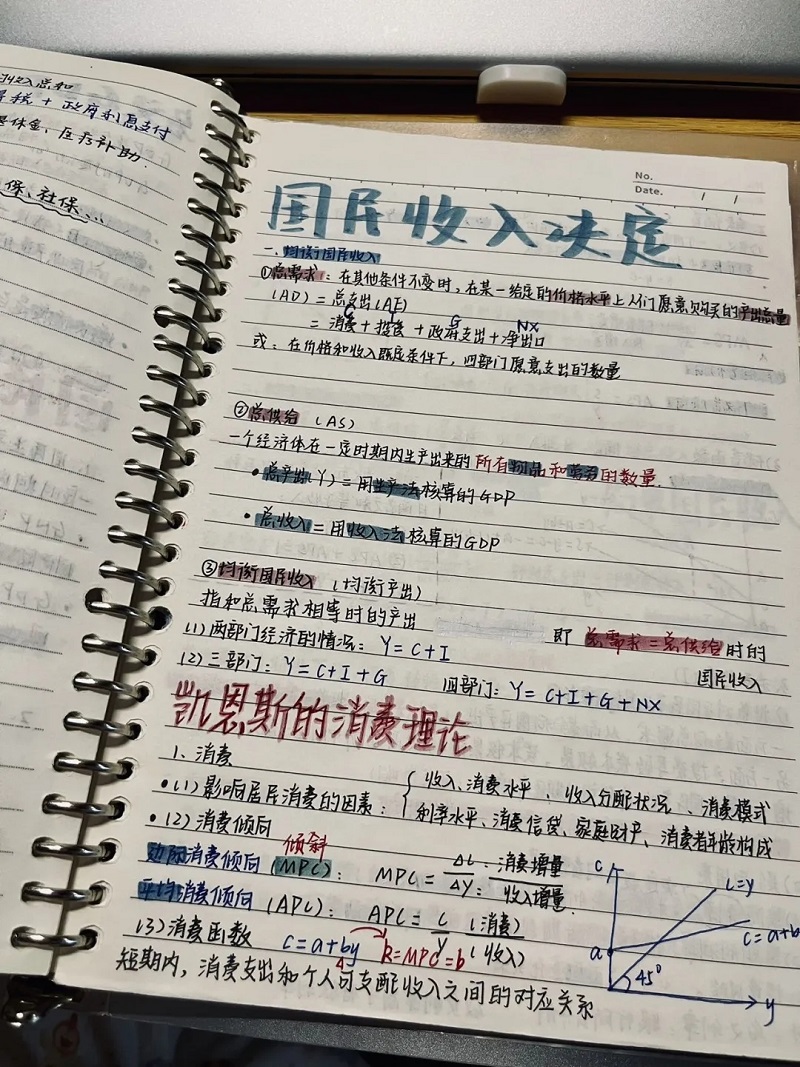 收入总和
税 + 政府利息支付
休金, 医疗补助.
保、社保、...
No.
Date. / /
国民收入决定
一、均衡国民收入
①总需求：在其他条件不变时, 在某一给定的价格水平上人们愿意购买的产出总量
(AD) = 总支出(AE)
C I G NX
= 消费 + 投资 + 政府支出 + 净出口
或：在价格和收入既定条件下, 四部门愿意支出的数量
②总供给 (AS)
一个经济体在一定时期内生产出来的所有物品和劳务的数量.
• 总产出(Y) = 用生产法核算的GDP
• 总收入 = 用收入法核算的GDP
③均衡国民收入 (均衡产出)
指和总需求相等时的产出 即 总需求 = 总供给时的
国民收入
(1) 两部门经济的情况：Y = C+I
(2) 三部门：Y = C+I+G 四部门：Y = C+I+G+NX
凯恩斯的消费理论
1. 消费
• (1) 影响居民消费的因素：{ 收入、消费水平、收入分配状况、消费模式
利率水平、消费信贷、家庭财产、消费者年龄构成
• (2) 消费倾向
倾斜
边际消费倾向 (MPC)： MPC = ΔC：消费增量
ΔY：收入增量.
平均消费倾向 (APC)： APC = C (消费)
Y (收入)
(3) 消费函数 C = a+by k=MPC=b
短期内, 消费支出和个人可支配收入之间的对应关系
C
C=y
C=a+b
a
45°
y